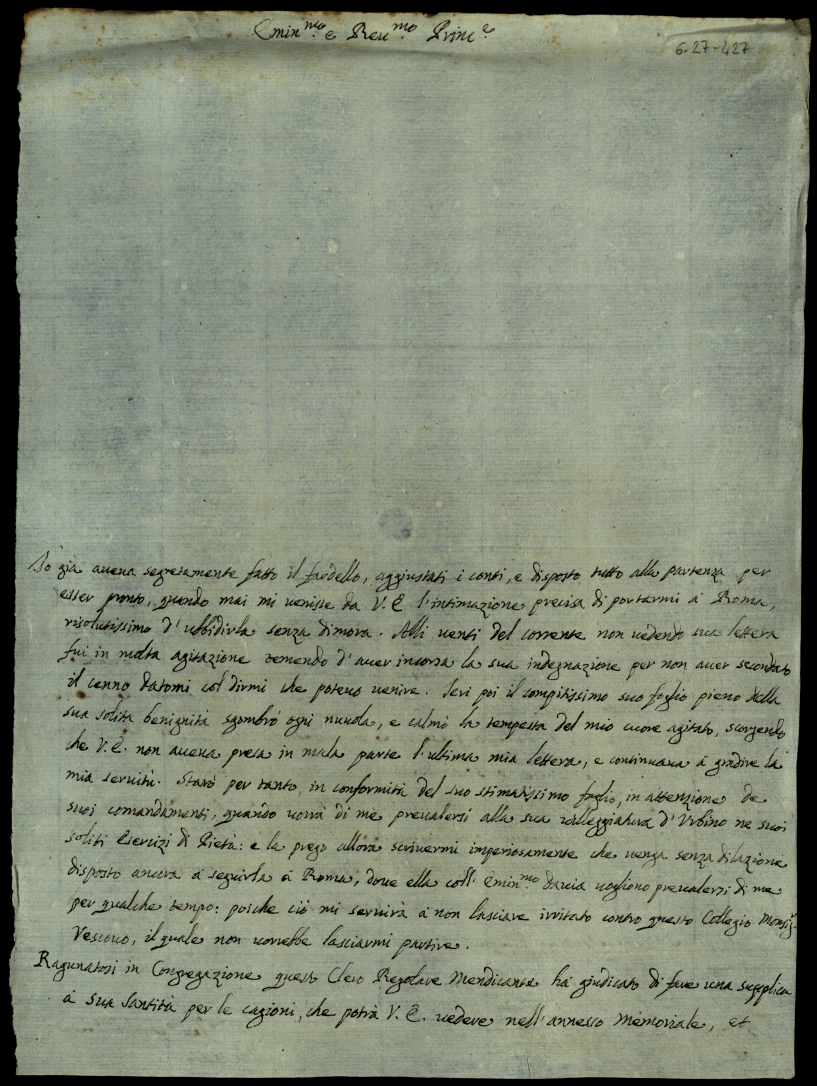 Emin.mo e Reu.mo Princ.e
6-27-427
Io già aueua segretamente fatto il fardello, aggiustati i conti, e disposto tutto alla partenza per
esser pronto, quando mai mi uenisse da V. E. l'intimazione precisa di portarmi à Roma,
risolutissimo d'ubbidirla senza dimora. Alli uenti del corrente non uedendo sua lettera
fui in molta agitazione temendo d'auer incorsa la sua indegnazione per non auer secondato
il cenno datomi col dirmi che poteuo uenire. Ieri poi il compitissimo suo foglio pieno della
sua solita benignità sgombrò ogni nuuola, e calmò la tempesta del mio cuore agitato, scorgendo
che V. E. non aueua presa in mala parte l'ultima mia lettera, e continuaua à gradire la
mia seruitù. Starò per tanto, in conformità del suo stimatissimo foglio, in attenzione de
suoi comandamenti, quando uorrà di me preualersi alla sua uilleggiatura d'Vrbino ne suoi
soliti Esercizi di Pietà: e la prego allora scriuermi imperiosamente che uenga senza dilazione
disposto ancora à seguirla à Roma, doue ella coll' Emin.mo Dauia uogliono preualersi di me
per qualche tempo: poiche ciò mi seruirà à non lasciare irritato contro questo Collegio Monsig.r
Vescouo, il quale non uorrebbe lasciarmi partire.
Ragunatosi in Congregazione questo Clero Regolare Mendicante hà giudicato di fare una supplica
à sua Santità per le cagioni, che potrà V. E. uedere nell'annesso Memoriale, et